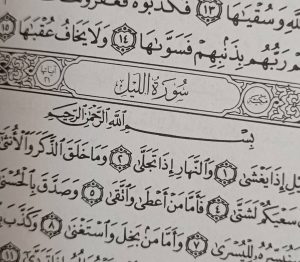 وَسُقْيَٰهَا ١٣ فَكَذَّبُوهُ فَعَقَرُوهَا
رَبُّهُم بِذَنۢبِهِمْ فَسَوَّىٰهَا ١٤ وَلَا يَخَافُ عُقْبَٰهَا ١٥
سُورَةُ اللَّيْلِ
بِسْمِ اللَّهِ الرَّحْمَٰنِ الرَّحِيمِ
إِذَا يَغْشَىٰ ١ وَٱلنَّهَارِ إِذَا تَجَلَّىٰ ٢ وَمَا خَلَقَ ٱلذَّكَرَ وَٱلْأُنثَىٰ
سَعْيَكُمْ لَشَتَّىٰ ٤ فَأَمَّا مَنْ أَعْطَىٰ وَٱتَّقَىٰ ٥ وَصَدَّقَ بِٱلْحُسْنَىٰ
٧ وَأَمَّا مَنۢ بَخِلَ وَٱسْتَغْنَىٰ ٨ وَكَذَّبَ
١١